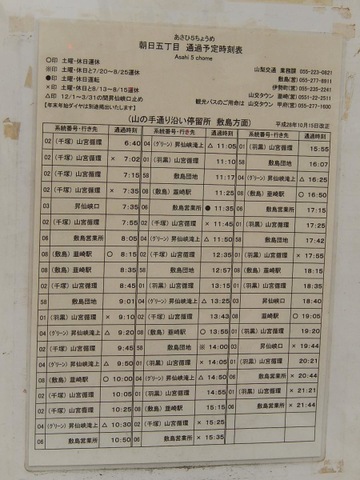 あさひ5ちょうめ
朝日五丁目 通過予定時刻表
Asahi 5 chome
○印 土曜・休日運休
※印 土・休日と7/20～8/25運休
●印 土曜・休日運転
×印 土・休日と8/13～8/15運休
△印 12/1～3/31の間昇仙峡口止め
【年末年始ダイヤは別途掲出いたします】
山梨交通 業務課 055-223-0821
敷島(営) 055-277-8911
伊勢町(営) 055-235-2241
山交タウン 韮崎(営) 0551-22-2511
観光バスのご用命は 山交タウン 甲府(営) 055-277-1600
(山の手通り沿い停留所 敷島方面)
平成29年10月15日改正
系統番号・行き先 通過時刻
02 (千塚) 山宮循環 6:40
02 (千塚) 山宮循環 × 7:02
02 (千塚) 山宮循環 7:15
02 (千塚) 山宮循環 × 7:35
03 昇仙峡口 7:55
02 (千塚) 山宮循環 7:55
06 敷島営業所 8:05
08 (敷島) 韮崎駅 ○ 8:15
08 (敷島) 韮崎駅 8:35
58 敷島団地 9:01
01 (羽黒) 山宮循環 × 9:10
04 (グリーン) 昇仙峡滝上 △ 9:20
02 (千塚) 山宮循環 9:45
04 (グリーン) 昇仙峡滝上 △ 9:50
08 (敷島) 韮崎駅 ○ 10:00
02 (千塚) 山宮循環 10:05
02 (千塚) 山宮循環 10:25
04 (グリーン) 昇仙峡滝上 △ 10:30
06 敷島営業所 10:50
系統番号・行き先 通過時刻
04 (グリーン) 昇仙峡滝上 △ 11:05
01 (羽黒) 山宮循環 11:10
58 敷島団地 11:17
08 (敷島) 韮崎駅 11:25
06 敷島営業所 ● 11:35
02 (千塚) 山宮循環 × 11:45
04 (グリーン) 昇仙峡滝上 △ 11:50
58 敷島団地 12:35
58 敷島団地 12:57
02 (千塚) 山宮循環 13:15
04 (グリーン) 昇仙峡滝上 △ 13:20
02 (千塚) 山宮循環 13:43
08 (敷島) 韮崎駅 ○ 13:55
58 敷島団地 ※ 14:00
01 (羽黒) 山宮循環 14:05
04 (グリーン) 昇仙峡滝上 △ 14:50
08 (敷島) 韮崎駅 15:15
02 (千塚) 山宮循環 × 15:25
06 敷島営業所 × 15:35
系統番号・行き先 通過時刻
01 (羽黒) 山宮循環 15:55
58 敷島団地 16:07
04 (グリーン) 昇仙峡滝上 △ 16:25
08 (敷島) 韮崎駅 ○ 16:50
06 敷島営業所 17:15
02 (千塚) 山宮循環 17:25
58 敷島団地 17:42
01 (羽黒) 山宮循環 × 17:55
08 (敷島) 韮崎駅 18:15
01 (羽黒) 山宮循環 18:35
03 昇仙峡口 18:40
08 韮崎駅 ○ 19:05
01 (羽黒) 山宮循環 19:10
03 昇仙峡口 × 19:44
01 (羽黒) 山宮循環 20:21
06 敷島営業所 × 20:44
01 (羽黒) 山宮循環 × 21:21
06 敷島営業所 × 21:44